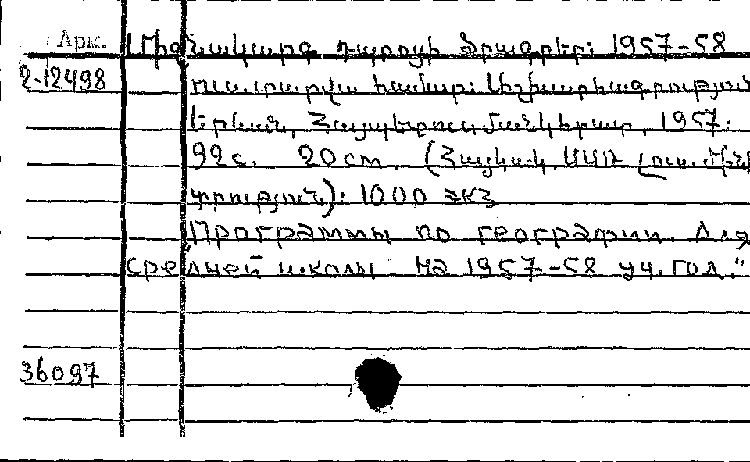 Арм.
2-12498
Միջնակարգ դպրոցի ծրագրեր: 1957-58
ուս. տարվա համար: Աշխարհագրություն
Երևան, Հայպետուսմանկհրատ, 1957.
92 с. 20 см. (Հայկակ. ՍՍՌ լուս. մին
տրություն): 1000 экз
"Программы по географии для
средней школы на 1957-58 уч. год."
36097